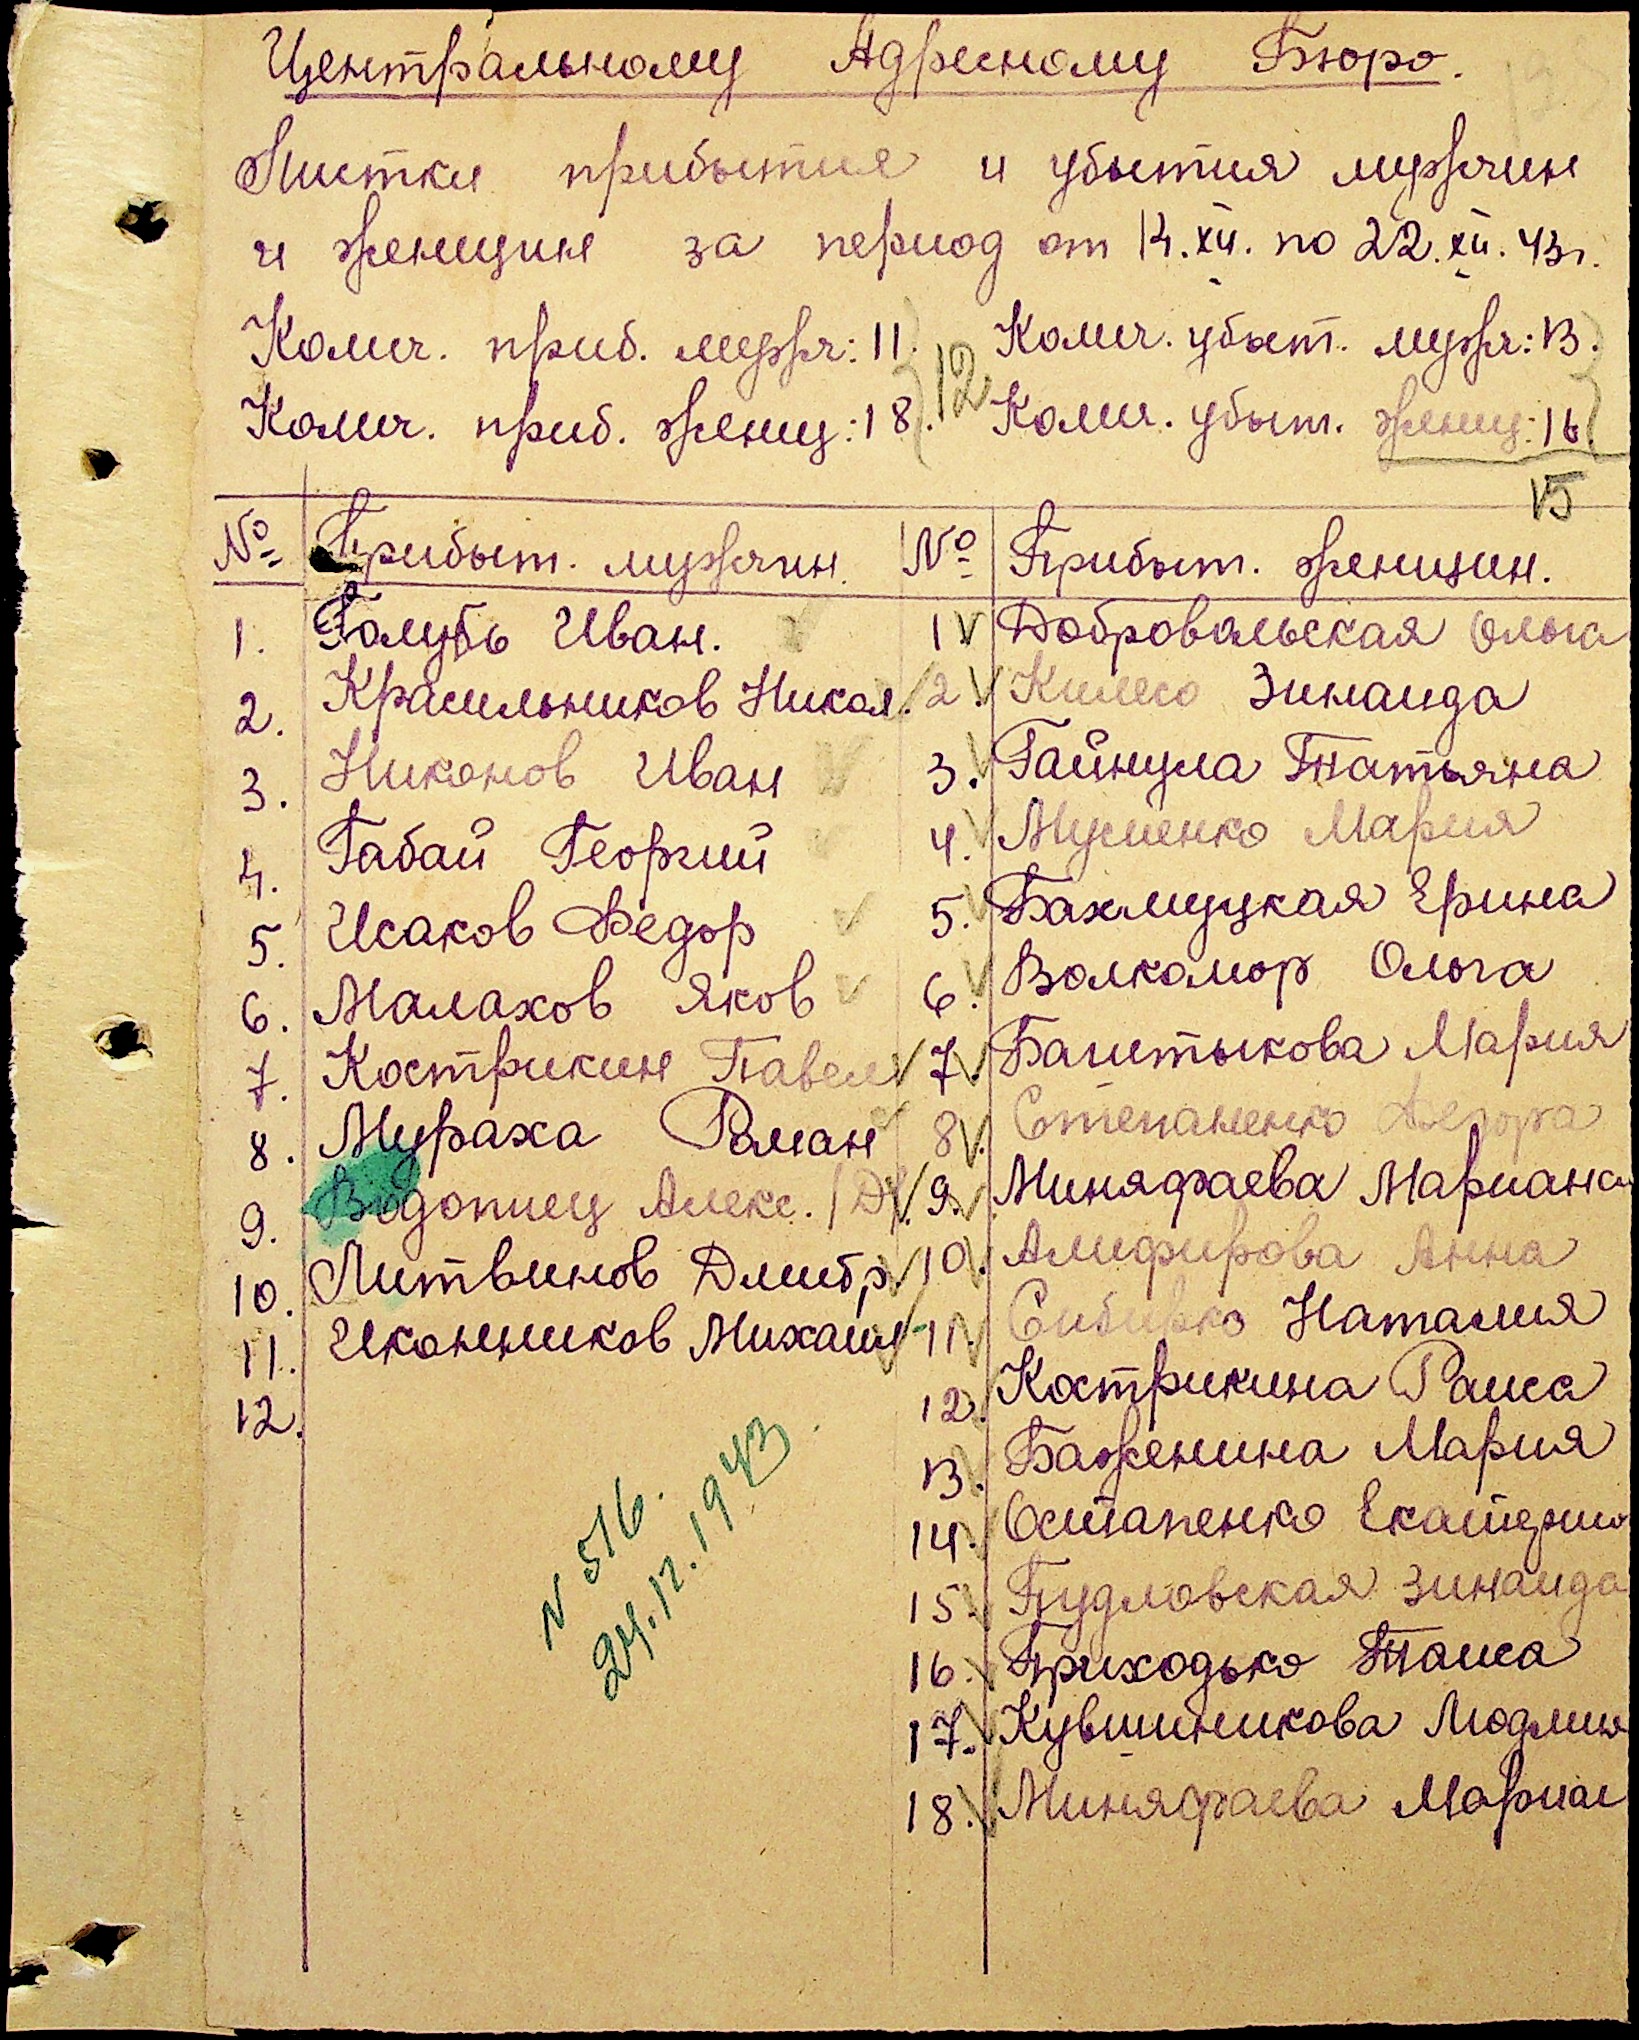 Центральному Адресному Бюро.
Листки прибытия и убытия мужчин
и женщин за период от 14.XII. по 22.XII.43г.
Колич. приб. мужч: 11. Колич. убыт. мужч: 13.
12
Колич. приб. женщ: 18. Колич. убыт. женщ: 16
15
№ Прибыт. мужчин. № Прибыт. женщин.
1. Голубь Иван. 1 Добровольская Ольга
2. Красильников Никол. 2. Килесо Зинаида
3. Никонов Иван 3. Гайнула Татьяна
4. Габай Георгий 4. Мусиенко Мария
5. Исаков Федор 5. Бахмуцкая Ерина
6. Малахов Яков 6. Волкомор Ольга
7. Кострикин Павел 7. Баштыкова Мария
8. Мураха Роман 8. Степаненко
9. Водопиец Алекс. 9. Миняфаева Мариана
10. Литвинов Дмитр. 10. Алифирова Анна
11. Иконников Михаил 11 Сибирко Наталия
12. 12. Кострикина Раиса
13. Баженина Мария
14. Остапенко Екатерин
15. Пудловская Зинаида
16. Приходько Таиса
17. Кувшиникова Людмил
18. Миняфаева Мариан
N 516.
24.12.1943